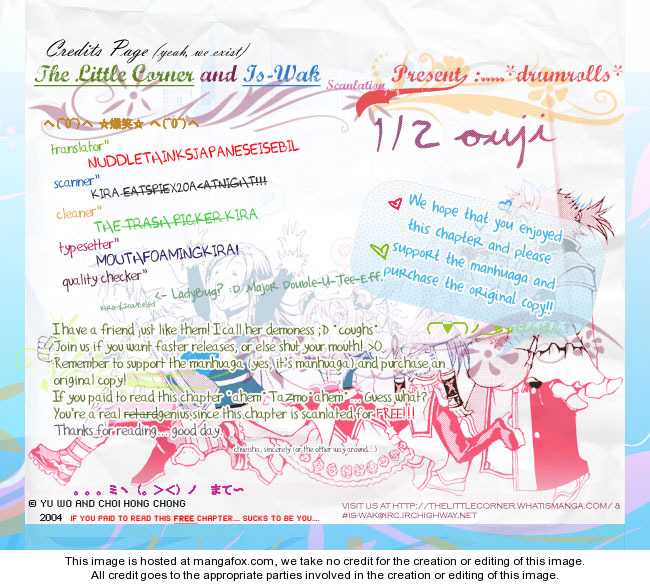 Credits Page (yeah, we exist)
The Little Corner and Is-Wak Scanlation Present, :.....*drumrolls*
ヘ(´0`)ヘ ☆爆笑☆ ヘ(´0`)ヘ
1/2 ouji
translator"
NUDDLETHINKSJAPANESEISEBIL
scanner"
KIRA EATSPIEX20A<ATNIGHT!!!
cleaner"
THE TRASH PICKER KIRA
typesetter"
MOUTHFOAMINGKIRA!
quality checker"
<- LadyBug? :D Major Double-U-Tee-Eff.
We hope that you enjoyed
this chapter and please
support the manhuaga and
purchase the original copy!!
I have a friend just like them! I call her demoness ;D *coughs*
Join us if you want faster releases, or else shut your mouth! >0
Remember to support the manhuaga (yes, it's manhuaga) and purchase an
original copy!
If you paid to read this chapter *ahem* Tazmo *ahem* ... Guess what?
You're a real retard genius since this chapter is scanlated for FREE!!!
Thanks for reading ... good day.
chuusha, sincerely (or the other way around...)
。。。ミヽ(。><)ノ まて~
© YU WO AND CHOI HONG CHONG
2004 IF YOU PAID TO READ THIS FREE CHAPTER... SUCKS TO BE YOU...
VISIT US AT HTTP://THELITTLECORNER.WHATISMANGA.COM/ &
#IS-WAK@IRC.IRCHIGHWAY.NET
This image is hosted at mangafox.com, we take no credit for the creation or editing of this image.
All credit goes to the appropriate parties involved in the creation or editing of this image.